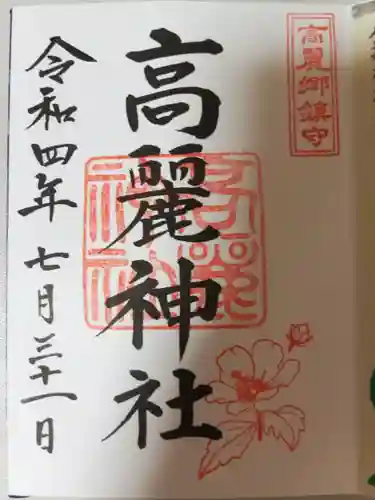 高麗郷鎮守
高麗神社
令和四年七月三十一日